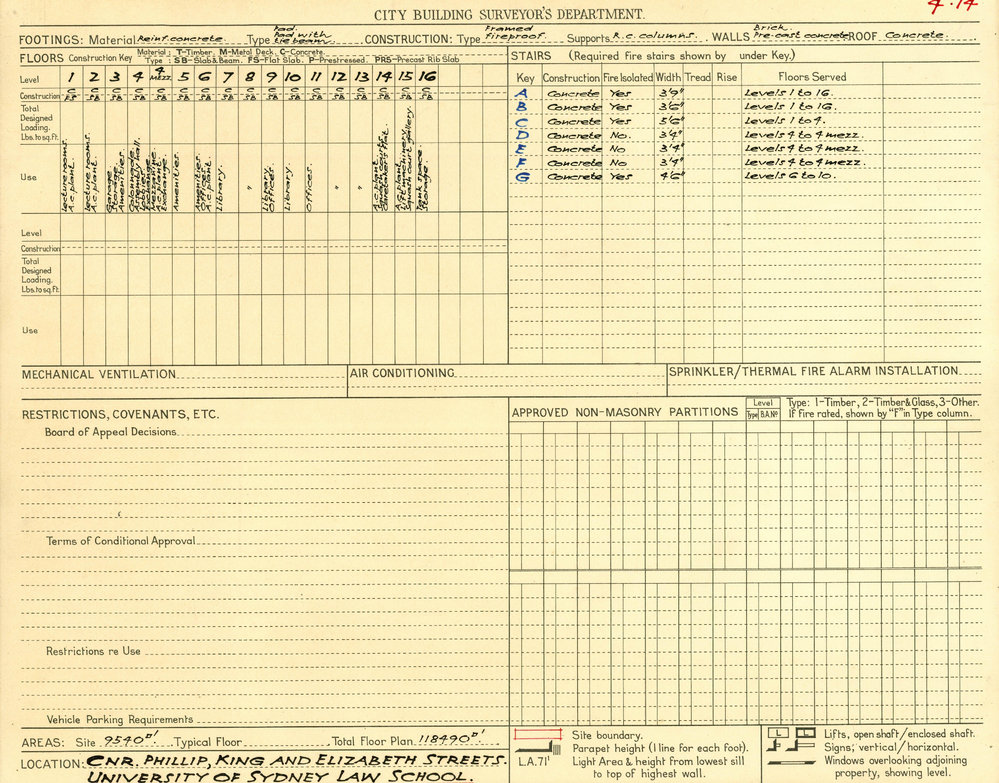 4·14
CITY BUILDING SURVEYOR'S DEPARTMENT.
FOOTINGS: Material Reinf. concrete. Type Pad. Pad with tie beam. CONSTRUCTION: Type Framed Fireproof. Supports R.C. columns. WALLS Brick. Pre-cast concrete ROOF Concrete.
FLOORS Construction Key Material: T-Timber, M-Metal Deck, C-Concrete.
Type: SB-Slab & Beam. FS-Flat Slab. P-Prestressed. PRS-Precast Rib Slab
Level 1 2 3 4 4 MEZZ. 5 6 7 8 9 10 11 12 13 14 15 16
Construction C FS C SB C SB C SB C SB C SB C SB C SB C SB C SB C SB C SB C SB C SB C SB C SB C SB
Total
Designed
Loading.
Lbs. to sq. ft.
Use
Lecture rooms. A.c. plant.
Lecture rooms. A.c. plant.
Garage Storage. Amenities.
Colonnade. Assembly hall. Lobbies
Mezzanine A.c. plant Exchange.
Amenities.
Amenities. Offices. A.c. plant
Library.
"
Library. Offices.
Library.
Offices.
"
"
A.c. plant Squash court. Caretaker's flat.
A.c. plant Lift machinery. Squash court gallery.
Tank space. Storage.
Level
Construction
Total
Designed
Loading.
Lbs. to sq. ft.
Use
STAIRS (Required fire stairs shown by under Key.)
Key Construction Fire Isolated Width Tread Rise Floors Served
A Concrete Yes 3'9" Levels 1 to 16.
B Concrete Yes 3'6" Levels 1 to 16.
C Concrete Yes 5'6" Levels 1 to 4.
D Concrete No. 3'4" Levels 4 to 4 mezz.
E Concrete No 3'4" Levels 4 to 4 mezz.
F Concrete No 3'9" Levels 4 to 4 mezz.
G Concrete Yes 4'6" Levels 6 to 10.
MECHANICAL VENTILATION
AIR CONDITIONING
SPRINKLER/THERMAL FIRE ALARM INSTALLATION
RESTRICTIONS, COVENANTS, ETC.
Board of Appeal Decisions
Terms of Conditional Approval
Restrictions re Use
Vehicle Parking Requirements
APPROVED NON-MASONRY PARTITIONS
Level
Type B.A.Nº
Type: 1-Timber, 2-Timber & Glass, 3-Other.
If Fire rated, shown by "F" in Type column.
AREAS: Site 9540□' Typical Floor Total Floor Plan 118490□'
LOCATION: CNR. PHILLIP, KING AND ELIZABETH STREETS.
UNIVERSITY OF SYDNEY LAW SCHOOL.
Site boundary.
Parapet height (1 line for each foot).
L.A. 71' Light Area & height from lowest sill
to top of highest wall.
L L Lifts, open shaft/enclosed shaft.
Signs, vertical/horizontal.
Windows overlooking adjoining
property, showing level.